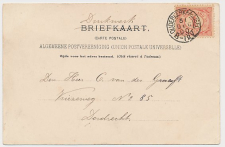 Drukwerk
BRIEFKAART.
(CARTE POSTALE)
ALGEMEENE POSTVEREENIGING (UNION POSTALE UNIVERSELLE)
Zijde voor het adres bestemd. (Côté réservé à l'adresse.)
Den Heer C. van der Graaff
No 285
Dordrecht